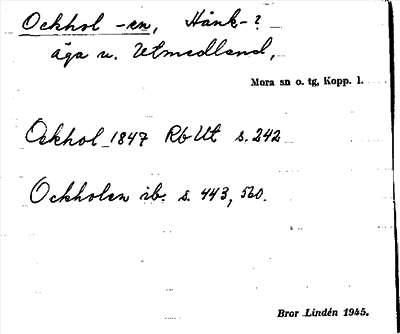 Ockhol -en, Hånk-?
äga u. Utmedland,
Mora sn o. tg, Kopp. l.
Ockhol 1847 Rb Ut s. 242
Ockholen ib. s. 443, 560.
Bror Lindén 1945.